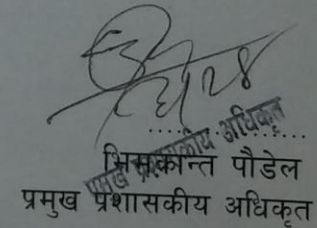 प्रमुख प्रशासकीय अधिकृत
भिमकान्त पौडेल
प्रमुख प्रशासकीय अधिकृत